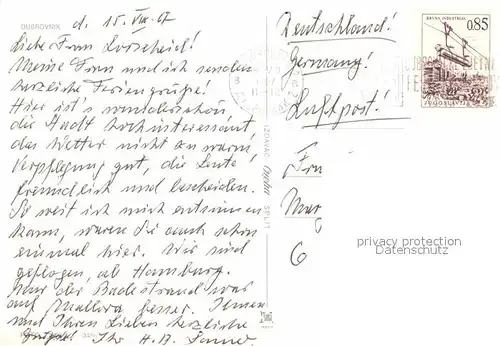 DUBROVNIK
d. 15. VIII. 67
Liebe Frau Lorscheid!
Meine Frau und ich senden
herzliche Feriengrüße!
Hier ist's wunderschön,
die Stadt hochinteressant,
das Wetter nicht zu warm,
Verpflegung gut, die Leute
freundlich und bescheiden.
So weit ich mich entsinnen
kann, waren Sie auch schon
einmal hier. Wir sind
geflogen, ab Hamburg.
Nur der Badestrand war
auf Mallorca besser. Ihnen
und Ihren Lieben herzliche
Grüße! Ihr H. D.
IZDAVAČ SPLIT
Deutschland!
Germany!
Luftpost!
DRVNA INDUSTRIJA
0,85
JUGOSLAVIJA
Frau
Mar
6
privacy protection
Datenschutz